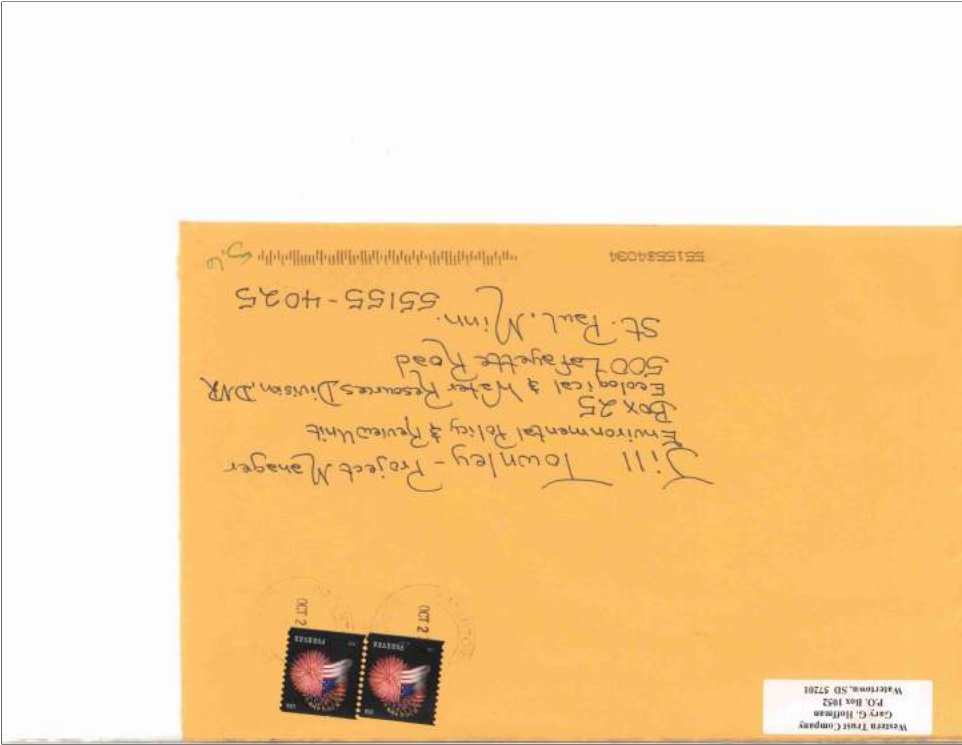 Western Trust Company
Gary G. Hoffman
P.O. Box 1052
Watertown, SD 57201
USA
FOREVER
USA
FOREVER
OCT 2
OCT 2
Jill Townley - Project Manager
Environmental Policy & Review Unit
Box 25
Ecological & Water Resources Division, DNR
500 Lafayette Road
St. Paul, Minn.
55155-4025
55155$4034
5.6